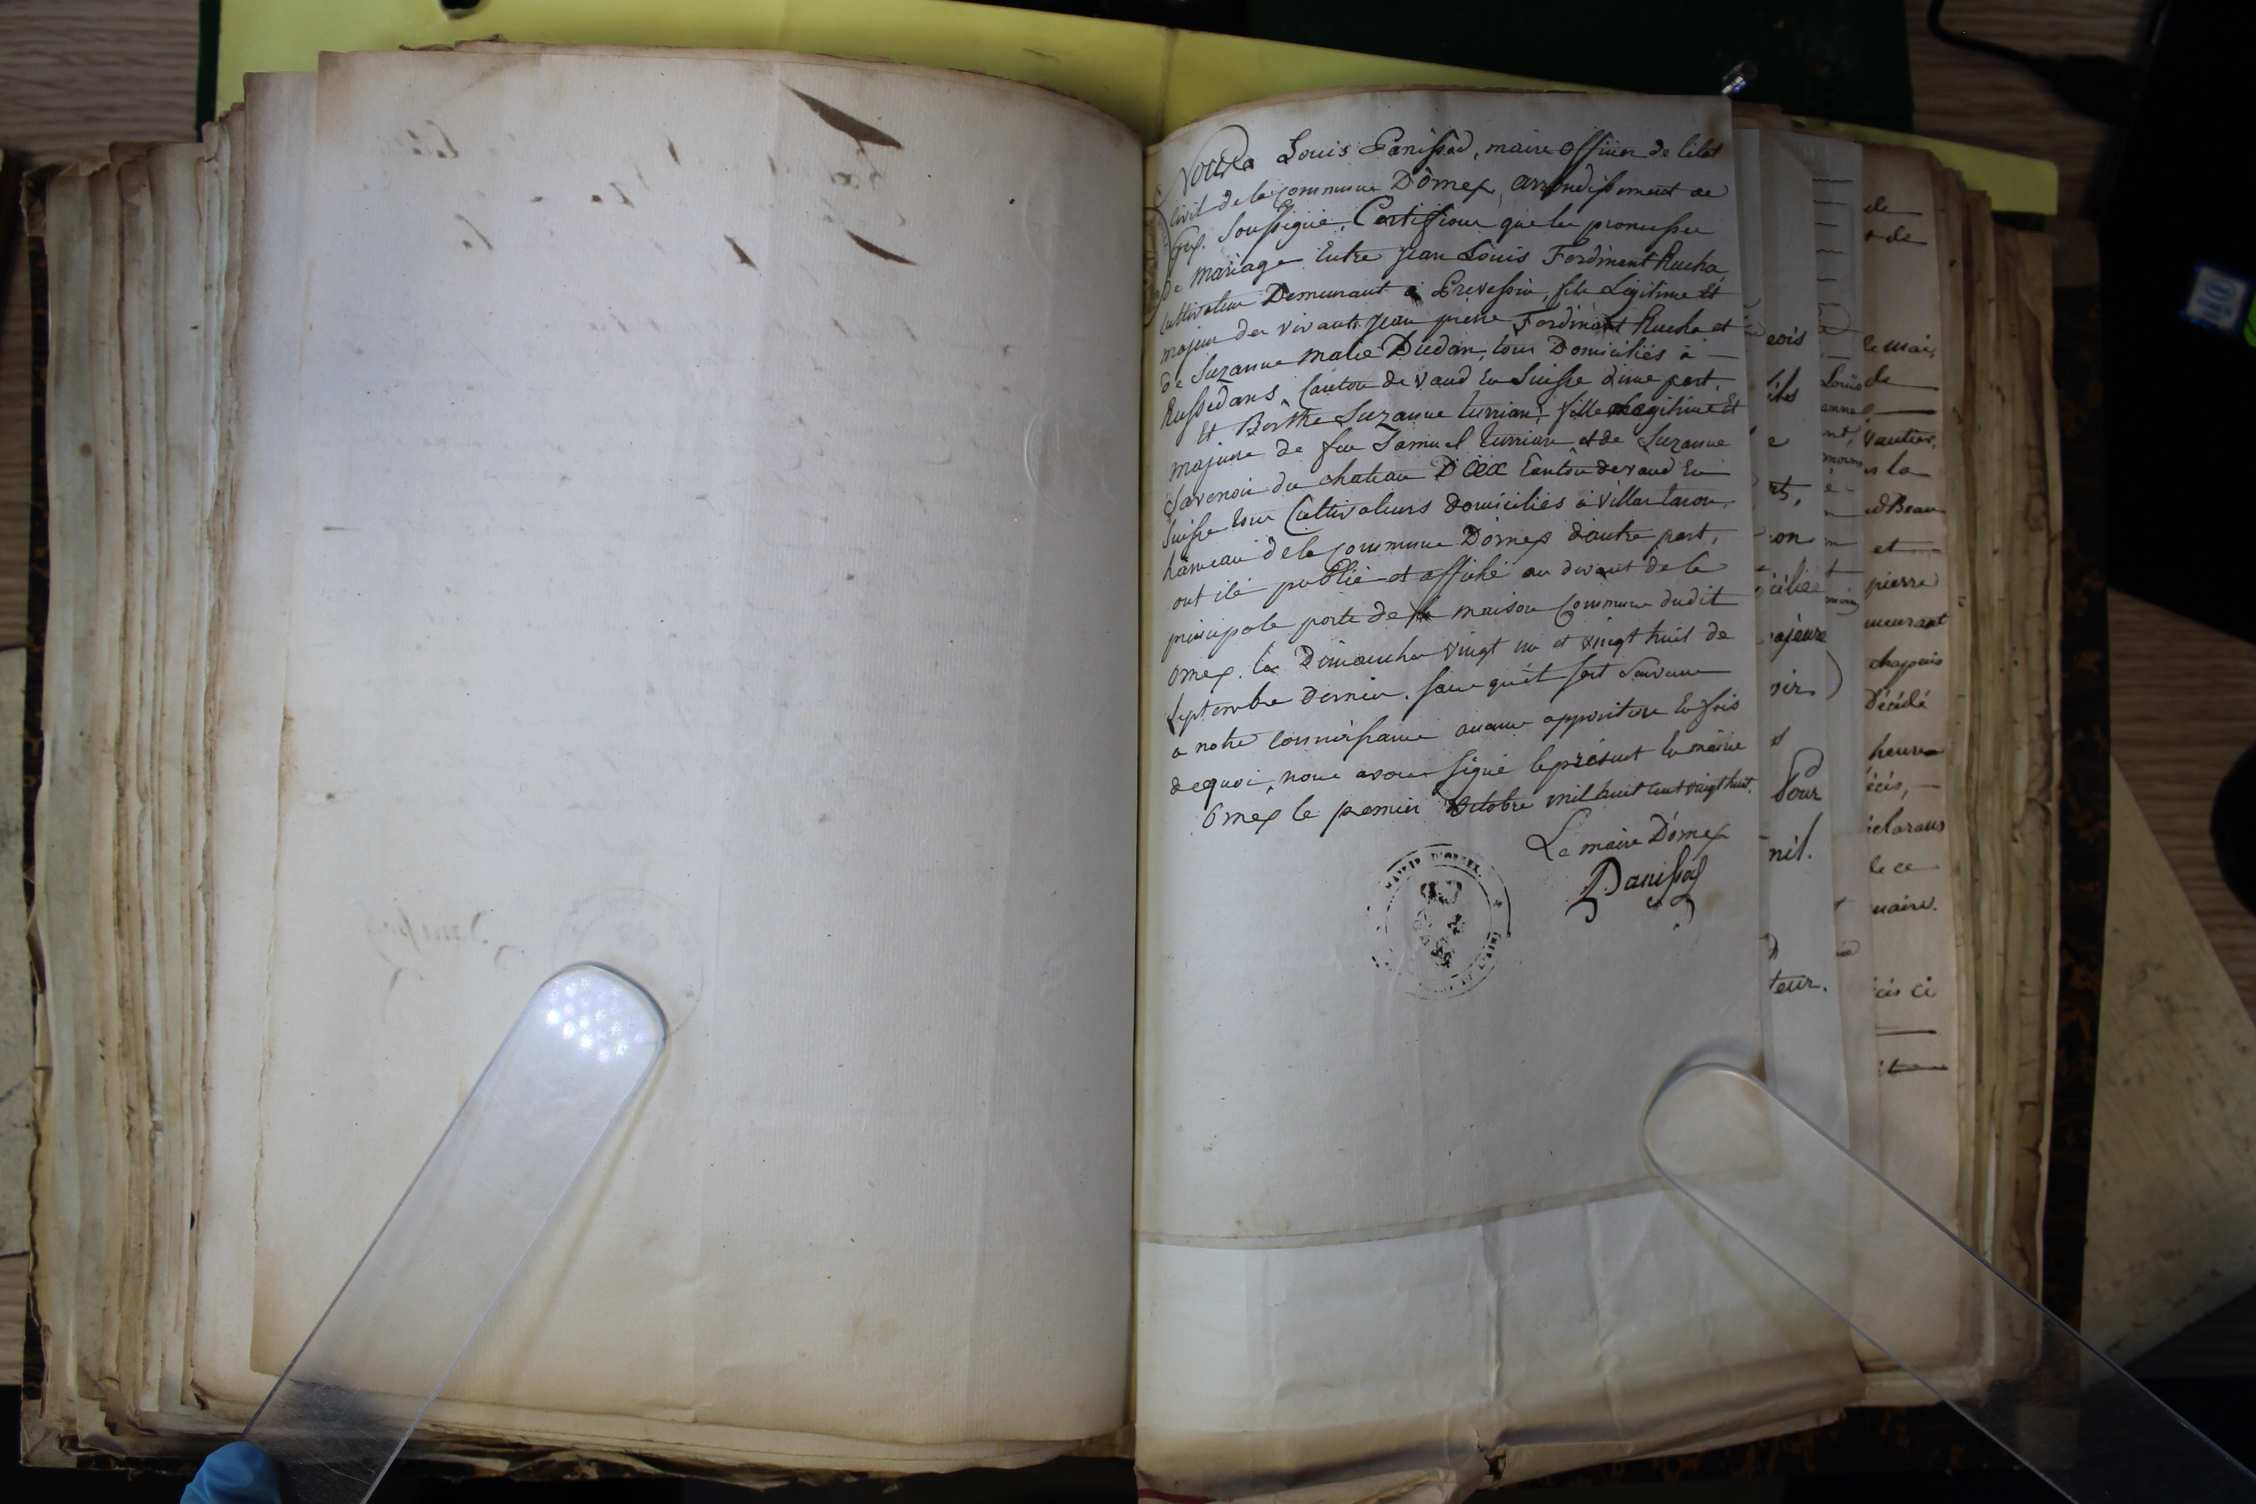 Nous Louis Panissod, maire officier de l'état
civil de la commune D'ornex, arrondissement de
Gex. Soussigné, Certifions que les promesses
de mariage Entre Jean Louis Ferdinent Rucha
cultivateur Demeurant à Prevessin, fils Legitime Et
majeur des vivants Jean pierre Ferdinant Rucha et
de Suzanne Marie Dudan, tous Domiciliés à
Canton de vaud En Suisse d'une part.
Et Berthe Suzanne turrian, fille Legitime Et
majeure de feu Samuel turrian et de Suzanne
du chateau D'Oex Canton de vaud En
Suisse tous Cultivateurs domiciliés à villar tacon,
hameau de la commune D'ornex d'autre part,
ont été publié et affiché au devant de la
principale porte de la maison Commune dudit
ornex. les Dimanches vingt un et vingt huit de
Septembre dernier. sans qu'il soit Survenu
a notre connoissance aucune opposition En fois
de quoi, nous avons signé le présent En mairie
Ornex le premier Octobre mil huit cent vingt huit.
Le maire D'ornex
Panissod
MAIRIE D'ORNEX
eois
fils
e
on
majeure
Pour
mil.
teur.
de
et de
le mai
de
vautier,
la
Beau
et
pierre
meurant
chapuis
Décédé
heures
écés,
éclarans
de ce
maire.